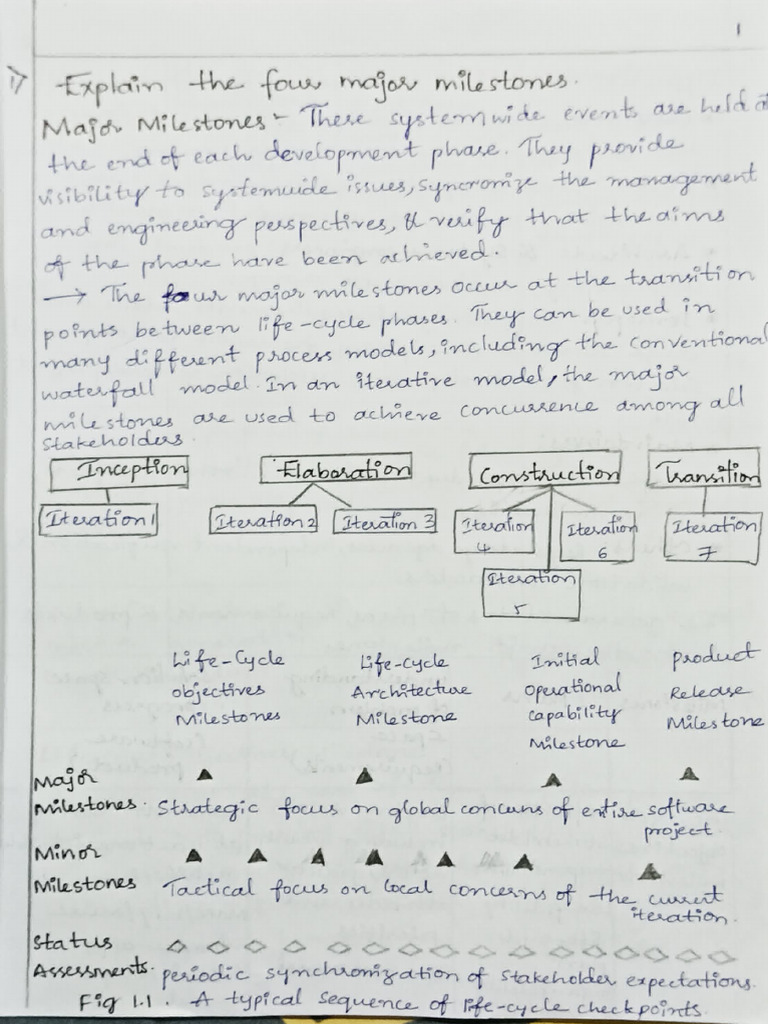 1
1) Explain the four major milestones.
Major Milestones:- These system wide events are held a
the end of each development phase. They provide
visibility to systemwide issues, syncromize the management
and engineering perspectives, & verify that the aims
of the phase have been achieved.
→ The four major milestones occur at the transition
points between life-cycle phases. They can be used in
many different process models, including the conventional
waterfall model. In an iterative model, the major
milestones are used to achieve concurrence among all
stakeholders.
Inception Elaboration Construction Transition
Iteration 1 Iteration 2 Iteration 3 Iteration 4 Iteration 6 Iteration 7
Iteration 5
Life-Cycle Life-Cycle Initial product
objectives Architecture Operational Release
Milestones Milestone capability Milestone
Milestone
Major
Milestones. Strategic focus on global concerns of entire software
project.
Minor
Milestones Tactical focus on local concerns of the current
iteration.
Status
Assessments. periodic synchronization of stakeholder expectations.
Fig 1.1. A typical sequence of life-cycle checkpoints.